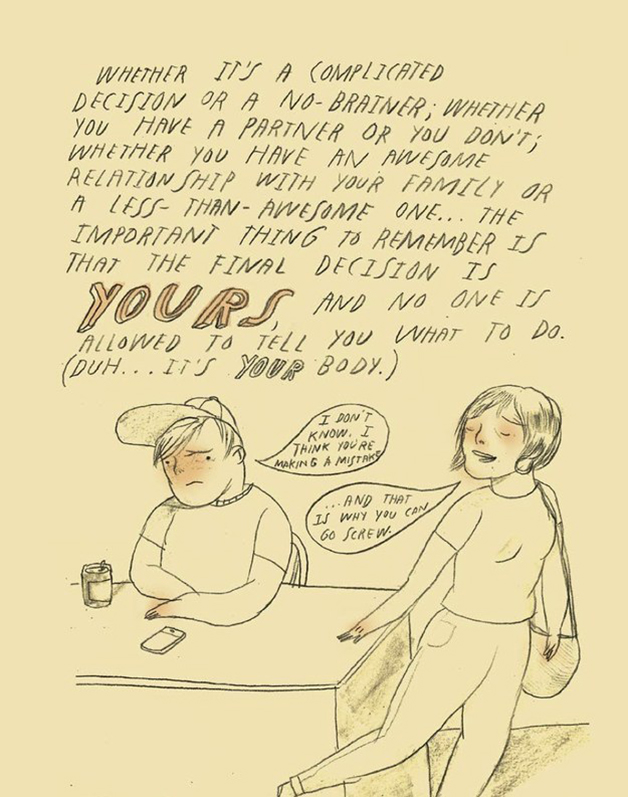 WHETHER IT'S A COMPLICATED
DECISION OR A NO-BRAINER; WHETHER
YOU HAVE A PARTNER OR YOU DON'T;
WHETHER YOU HAVE AN AWESOME
RELATIONSHIP WITH YOUR FAMILY OR
A LESS-THAN-AWESOME ONE... THE
IMPORTANT THING TO REMEMBER IS
THAT THE FINAL DECISION IS
YOURS, AND NO ONE IS
ALLOWED TO TELL YOU WHAT TO DO.
(DUH... IT'S YOUR BODY.)
I DON'T
KNOW. I
THINK YOU'RE
MAKING A MISTAKE
...AND THAT
IS WHY YOU CAN
GO SCREW.